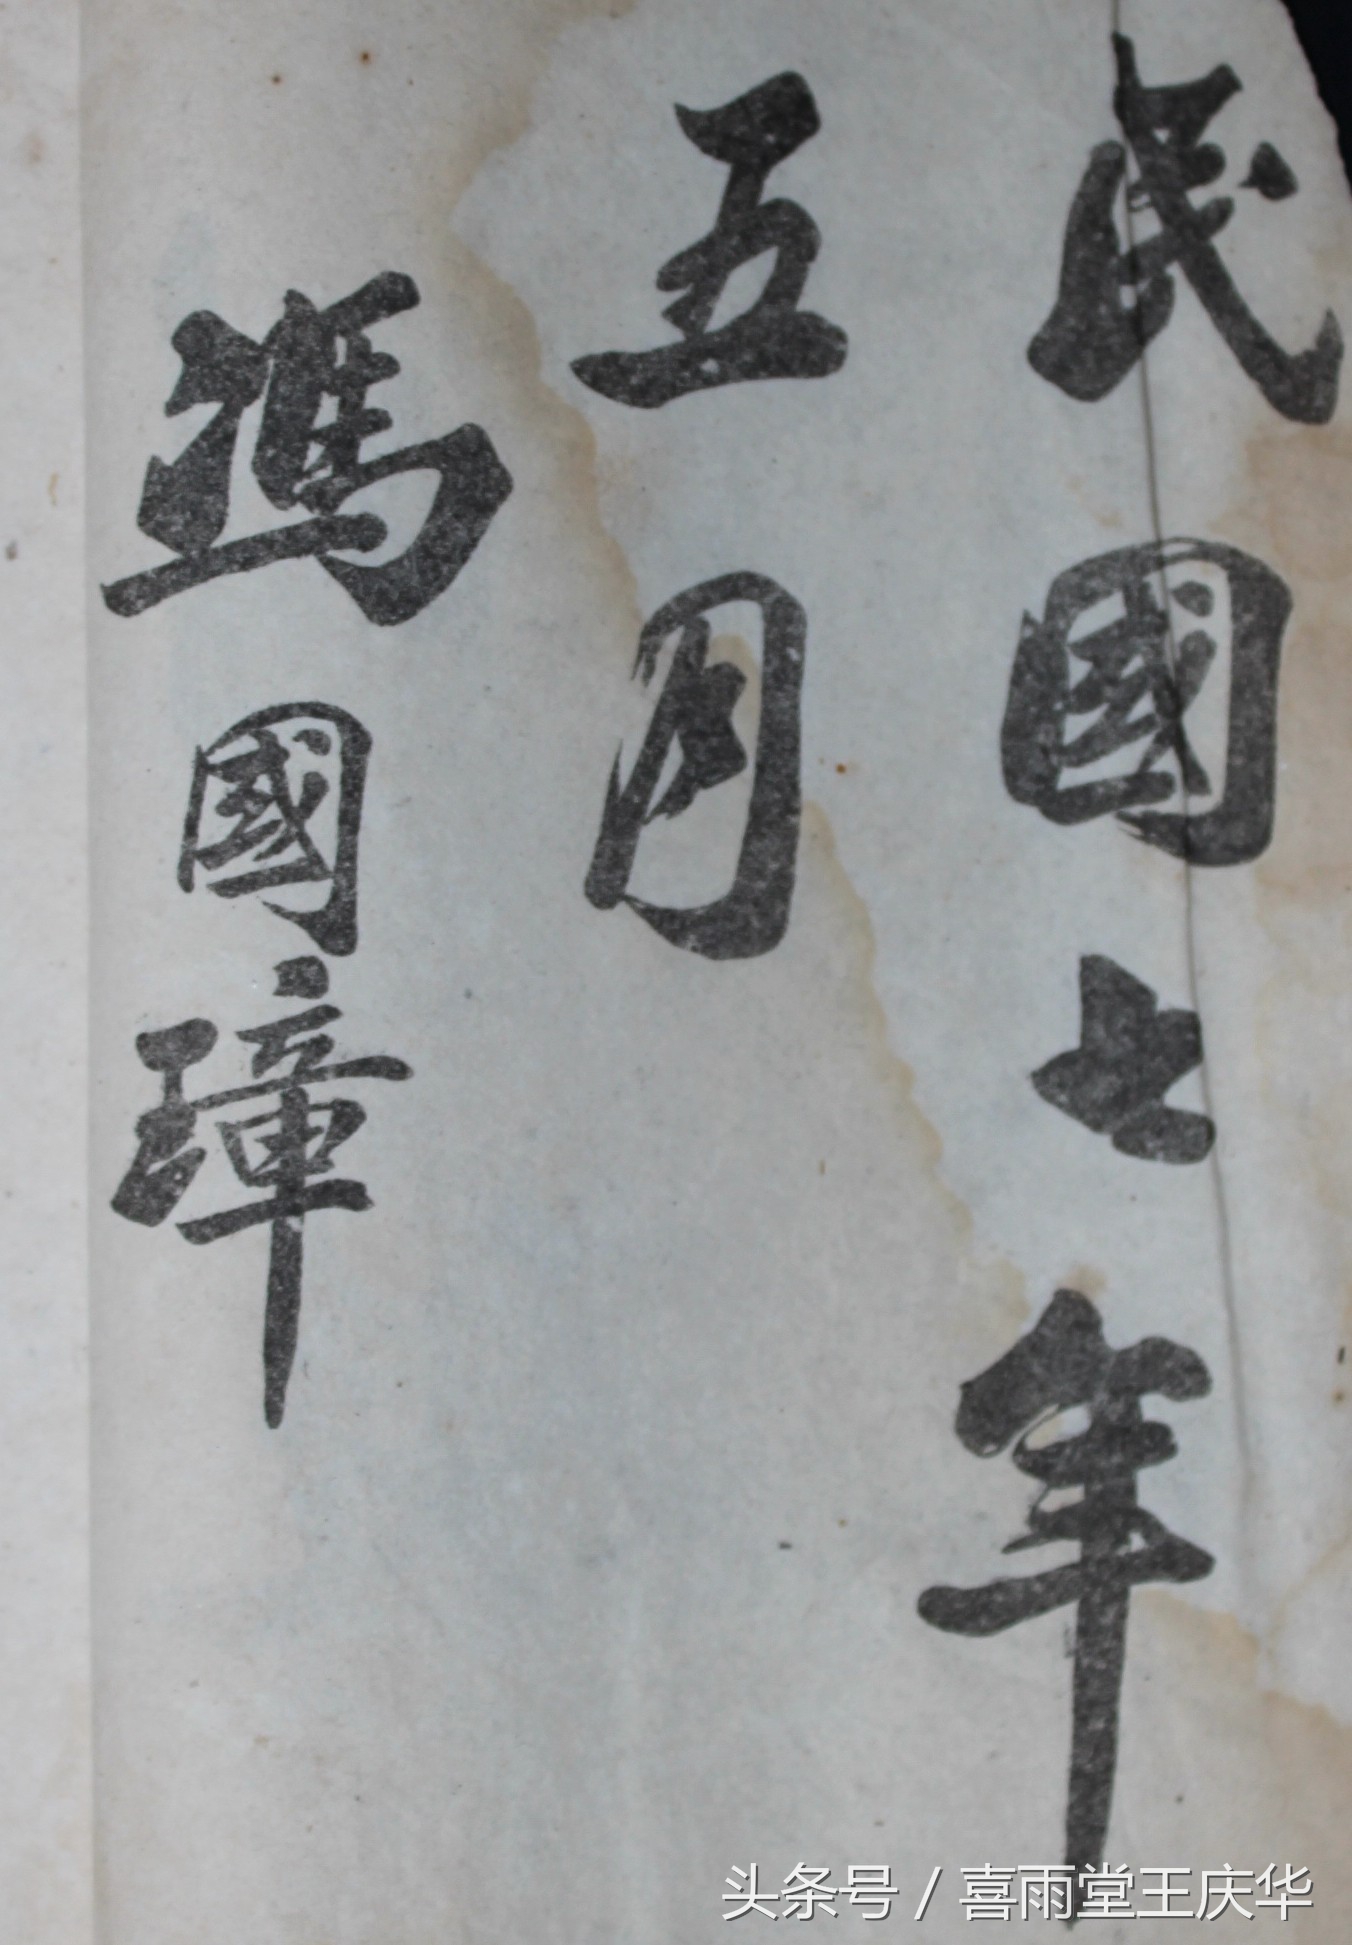 民國七年
五月
馮國璋
头条号 / 喜雨堂王庆华